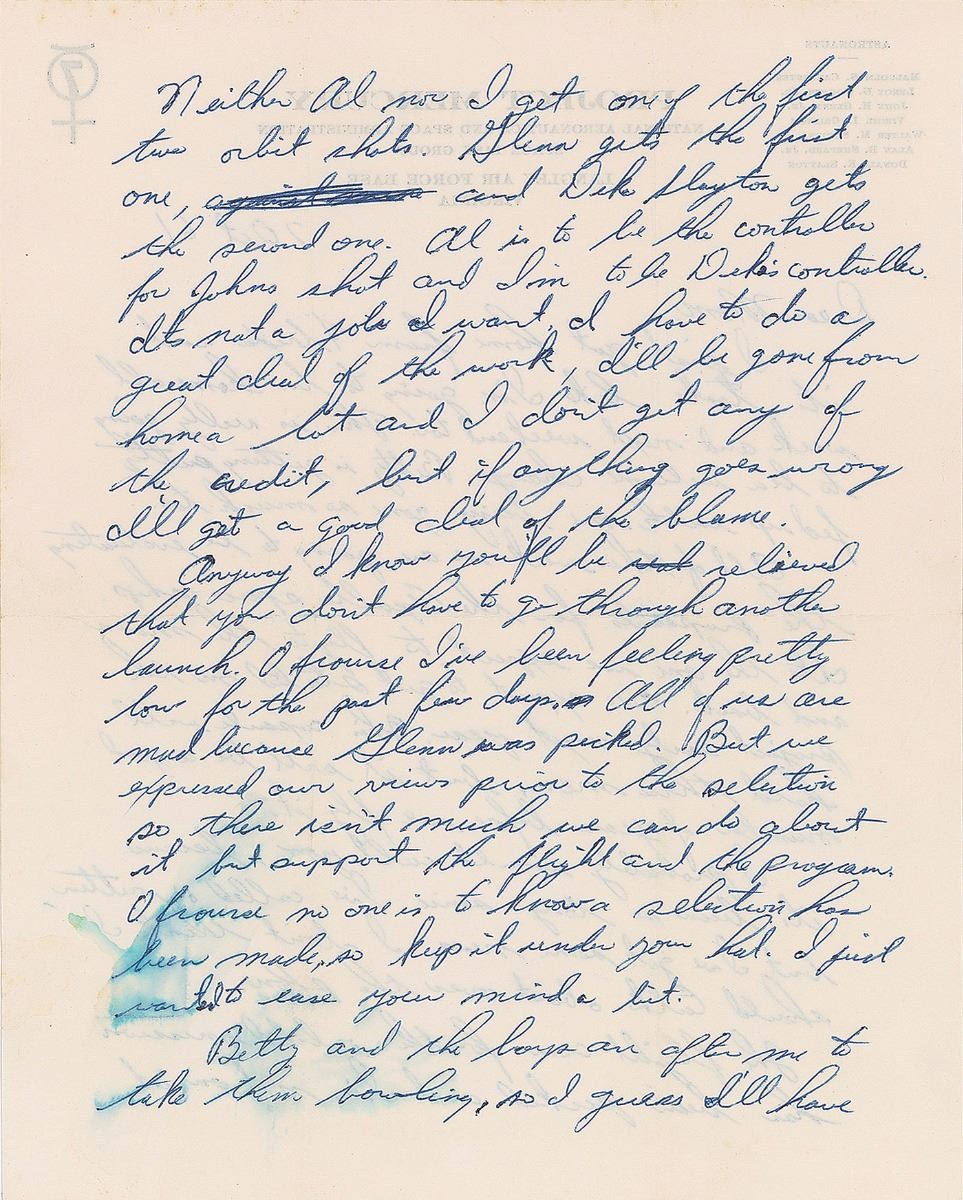 Neither Al nor I get one of the first
two orbit shots. Glenn gets the first
one, and Deke Slayton gets
the second one. Al is to be the controller
for Johns shot and I'm to be Deke's controller.
It's not a job I want, I have to do a
great deal of the work, I'll be gone from
home a lot and I don't get any of
the credit, but if anything goes wrong
I'll get a good deal of the blame.
Anyway I know you'll be relieved
that you don't have to go through another
launch. Of course I've been feeling pretty
low for the past few days. All of us are
mad because Glenn was picked. But we
expressed our views prior to the selection
so there isn't much we can do about
it but support the flight and the program.
Of course no one is to know a selection has
been made, so keep it under your hat. I just
wanted to ease your mind a bit.
Betty and the boys are after me to
take them bowling, so I guess I'll have